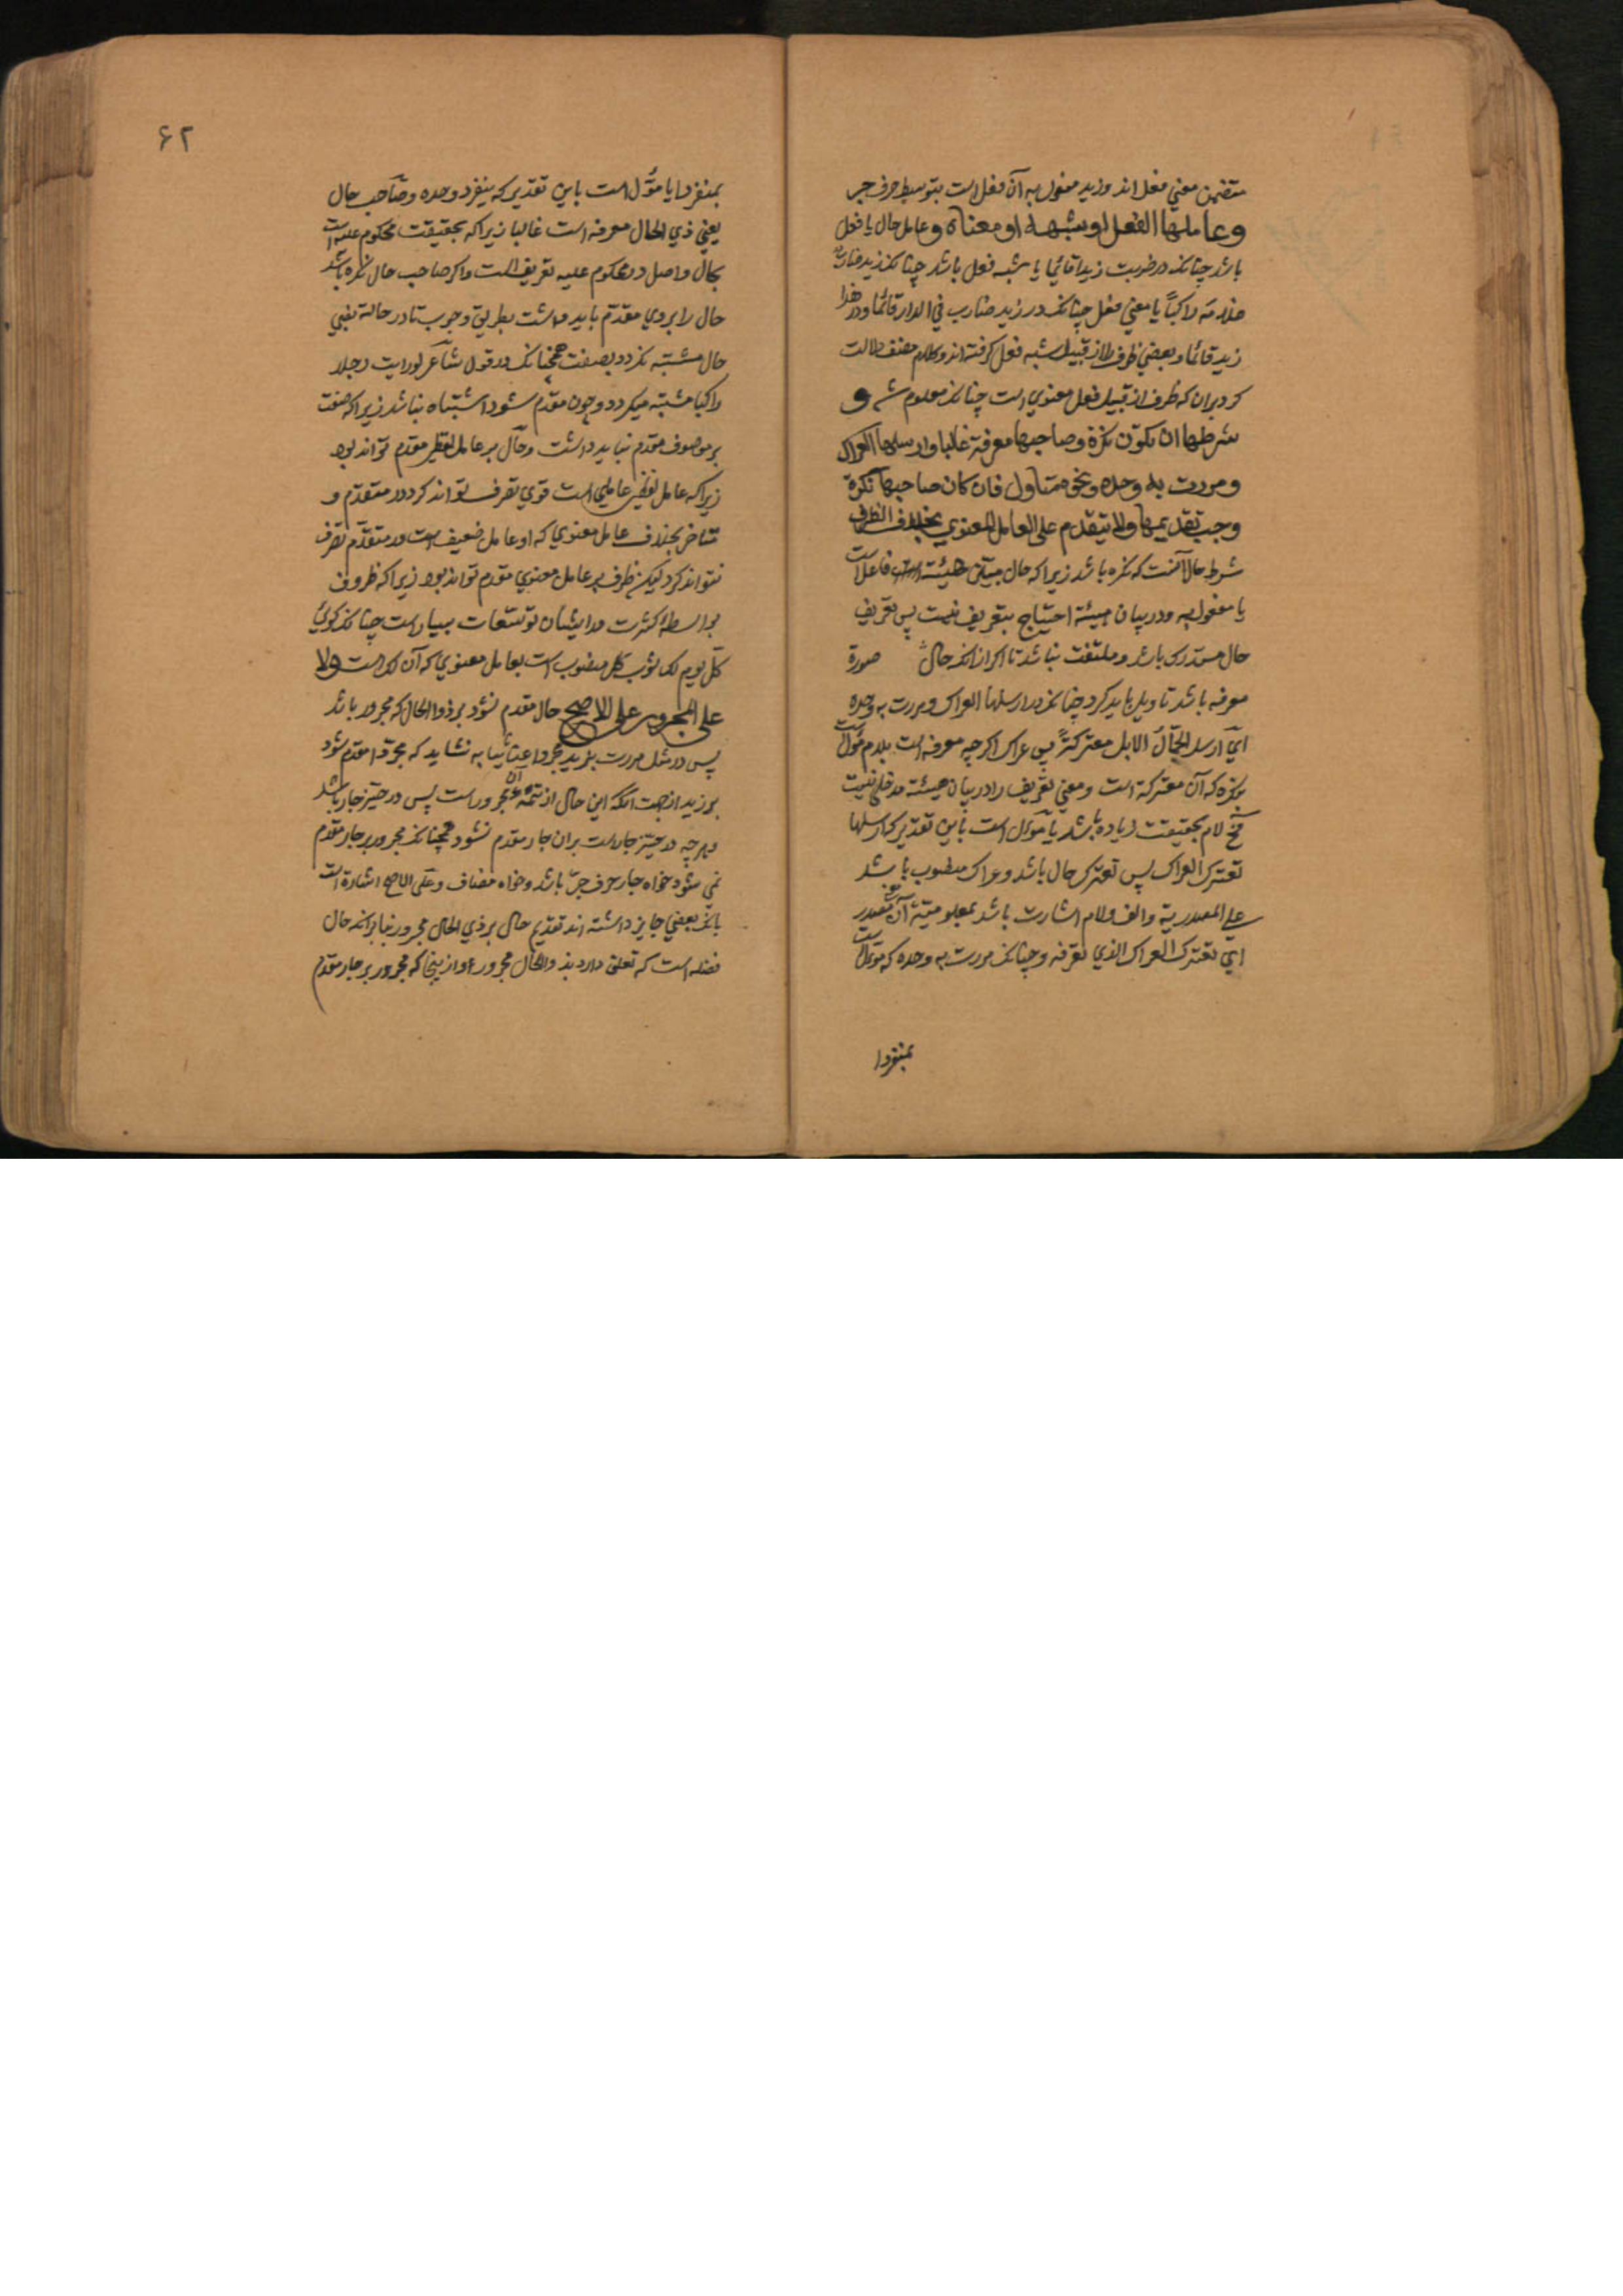 متضمن معني فعل اند وزيد مفعول به آن فعل است بتوسط حرف جر
وعاملها الفعل اوشبهه او معناه وعامل حال يا فعل
باشد چنانکه در ضربت زيدا قائما يا شبه فعل باشد چنانکه زيد ضارب
غلامه راکباً يا معني فعل چنانکه در زيد ضارب في الدار قائما ودر هذا
زيد قائما وبعضي ظرف را از قبيل شبه فعل گرفته اند وکلام مصنف دلالت
کرد بران که ظرف از قبيل فعل معنوي است چنانکه معلوم شد و
شرطها ان تکون نکرة وصاحبها معرفة غالبا وارسلها العراک
ومررت به وحده ونحوه متاول فان کان صاحبها نکرة
وجب تقديمها ولا يتقدم علي العامل المعنوي بخلاف الظرف
شرط حال آنست که نکره باشد زيراکه حال مبيّن هيئة فاعل است
يا مفعول به ودر بيان هيئة احتياج بتعريف نيست پس تعريف
حال مستدرک باشد وملتفت نباشد تا اکر از آنکه حال صورة
معرفه باشد تاويل بايد کرد چنانکه در ارسلها العراک ومررت به وحده
اي ارسل الابل معترکةً پس عراک اگرچه معرفه است بلام مؤول است
بنکره که آن معترکة است ومعني تعريف را در بيان هيئة مدخلي نيست
لام بحقيقت زياده باشد يا مؤول است باين تقدير که ارسلها
تعترک العراک پس تعترک حال باشد وعراک منصوب باشد
علي المصدرية والف ولام اشارت باشد بمعلوميّة آن مصدر
اي تعترک العراک الذي تعرفه وچنانکه مررت به وحده که مؤول است
بمنفردا
۶۲
بمنفردا يا مؤول است باين تقدير که ينفرد وحده وصاحب حال
يعني ذي الحال معرفه است غالبا زيراکه بحقيقت محکوم عليه است
بحال واصل در محکوم عليه تعريف است واگر صاحب حال نکره باشد
حال را بروي مقدّم بايد داشت بطريق وجوب تا در حالة نصبي
حال مشتبه نکردد بصفت همچنانکه در قول شاعر لو رايت رجلا
راکبا مشتبه ميکردد وچون مقدم شود اشتباه نباشد زيراکه صفت
بر موصوف مقدم نبايد داشت وحال بر عامل لفظي مقدم تواند بود
زيراکه عامل لفظي عاملي است قوي تصرف تواند کرد در متقدّم و
متاخر بخلاف عامل معنوي که او عامل ضعيف است ودر متقدّم تصرف
نتواند کرد ليکن ظرف بر عامل معنوي مقدم تواند بود زيراکه ظروف
بواسطه کثرت در ايشان توسّعات بسيار است چنانکه گوئي
کلّ يوم لک ثوب کل منصوب است بعامل معنوي که آن لک است ولا
علي المجرور علي الاصح حال مقدم نشود بر ذوا الحال که مجرور باشد
پس در مثل مررت بزيد مجردا عن ثيابه نشايد که مجردا مقدم شود
بر زيد از جهت آنکه اين حال از تتمه آن مجرور است پس در حيّز جار باشد
وهرچه در حيّز جار است بران جار مقدم نشود همچنانکه مجرور بر جار مقدم
نمي شود خواه جار حرف جرّ باشد وخواه مضاف وعلي الاصح اشارة است
بانکه بعضي جايز داشته اند تقديم حال بر ذي الحال مجرور بنا برانکه حال
فضله است که تعلق دارد بذو الحال مجرور واز ينجا که مجرور بر جار مقدم